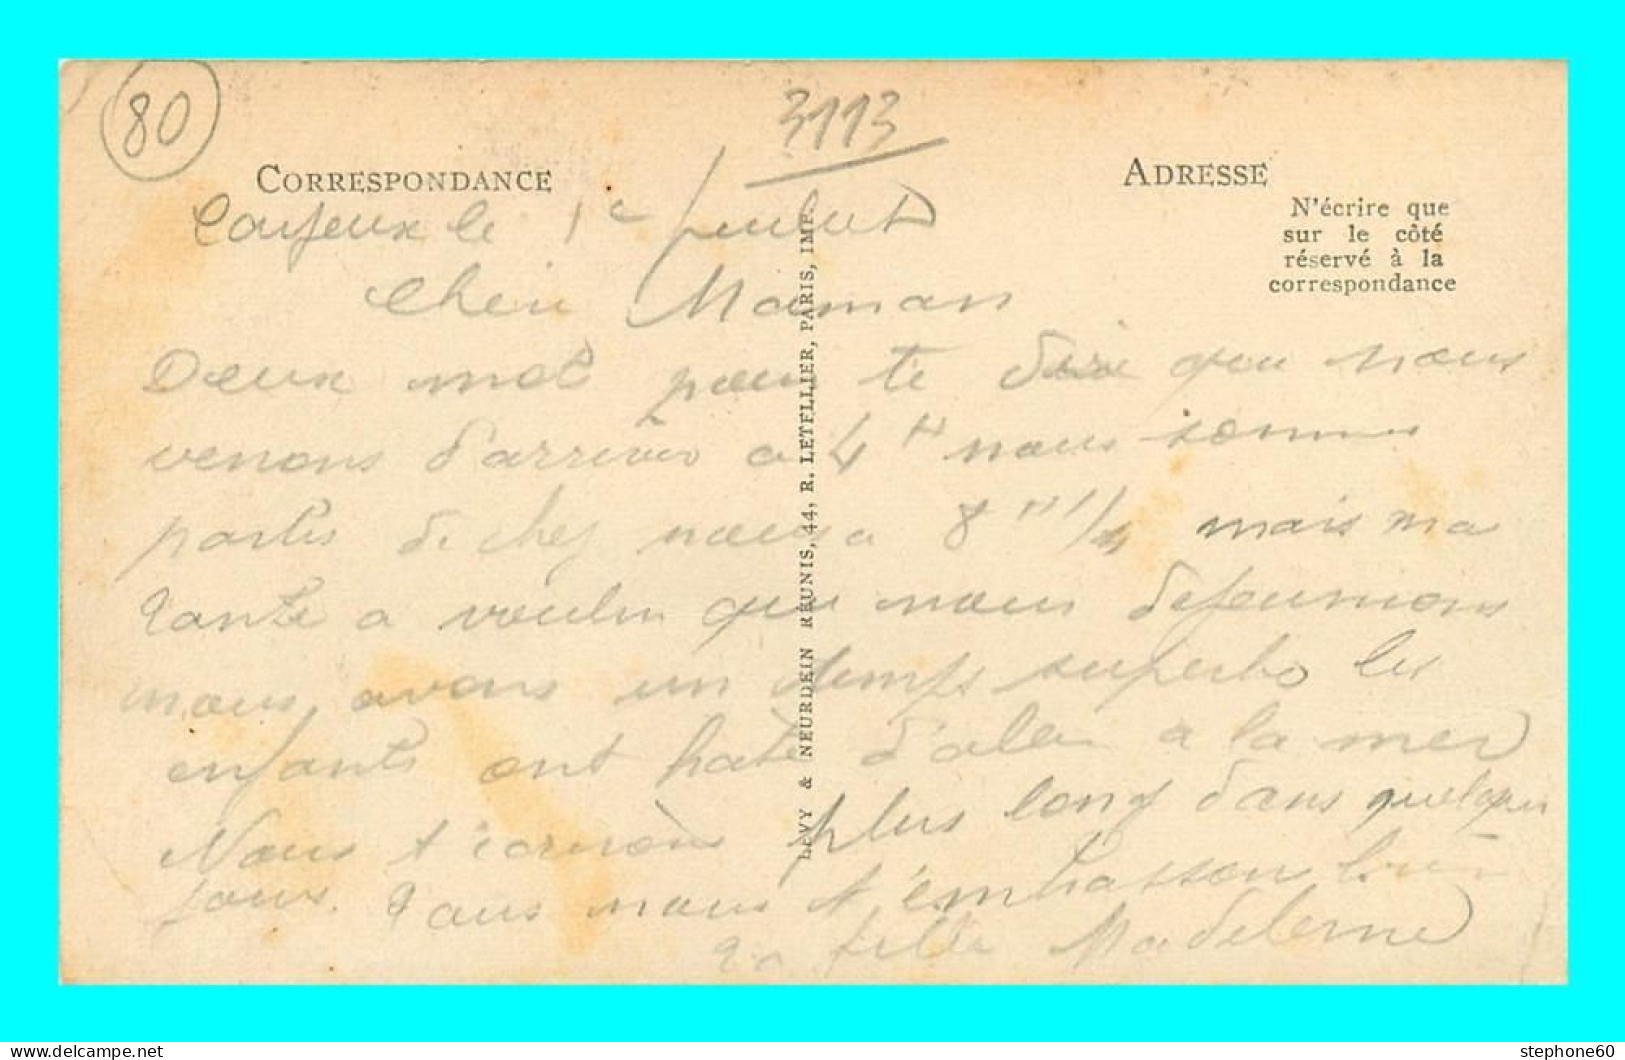 80
3113
CORRESPONDANCE
ADRESSE
N'écrire que
sur le côté
réservé à la
correspondance
Cayeux le 1e Juillet
Cheri Maman
Deux mot pour te dire que nous
venons d'arriver a 4 H nous sommes
partis de chez nous a 8 H 1/2 mais ma
tante a voulu que nous dejeunions
nous avons un temps superbe les
enfants ont hate d'aler a la mer
Nous t'ecrirons plus long dans quelque
jours. Tous nous t'embrasson bien
Ta fille Madelene
LEVY & NEURDEIN RÉUNIS, 44, R. LETELLIER, PARIS, IMP.
stephone60